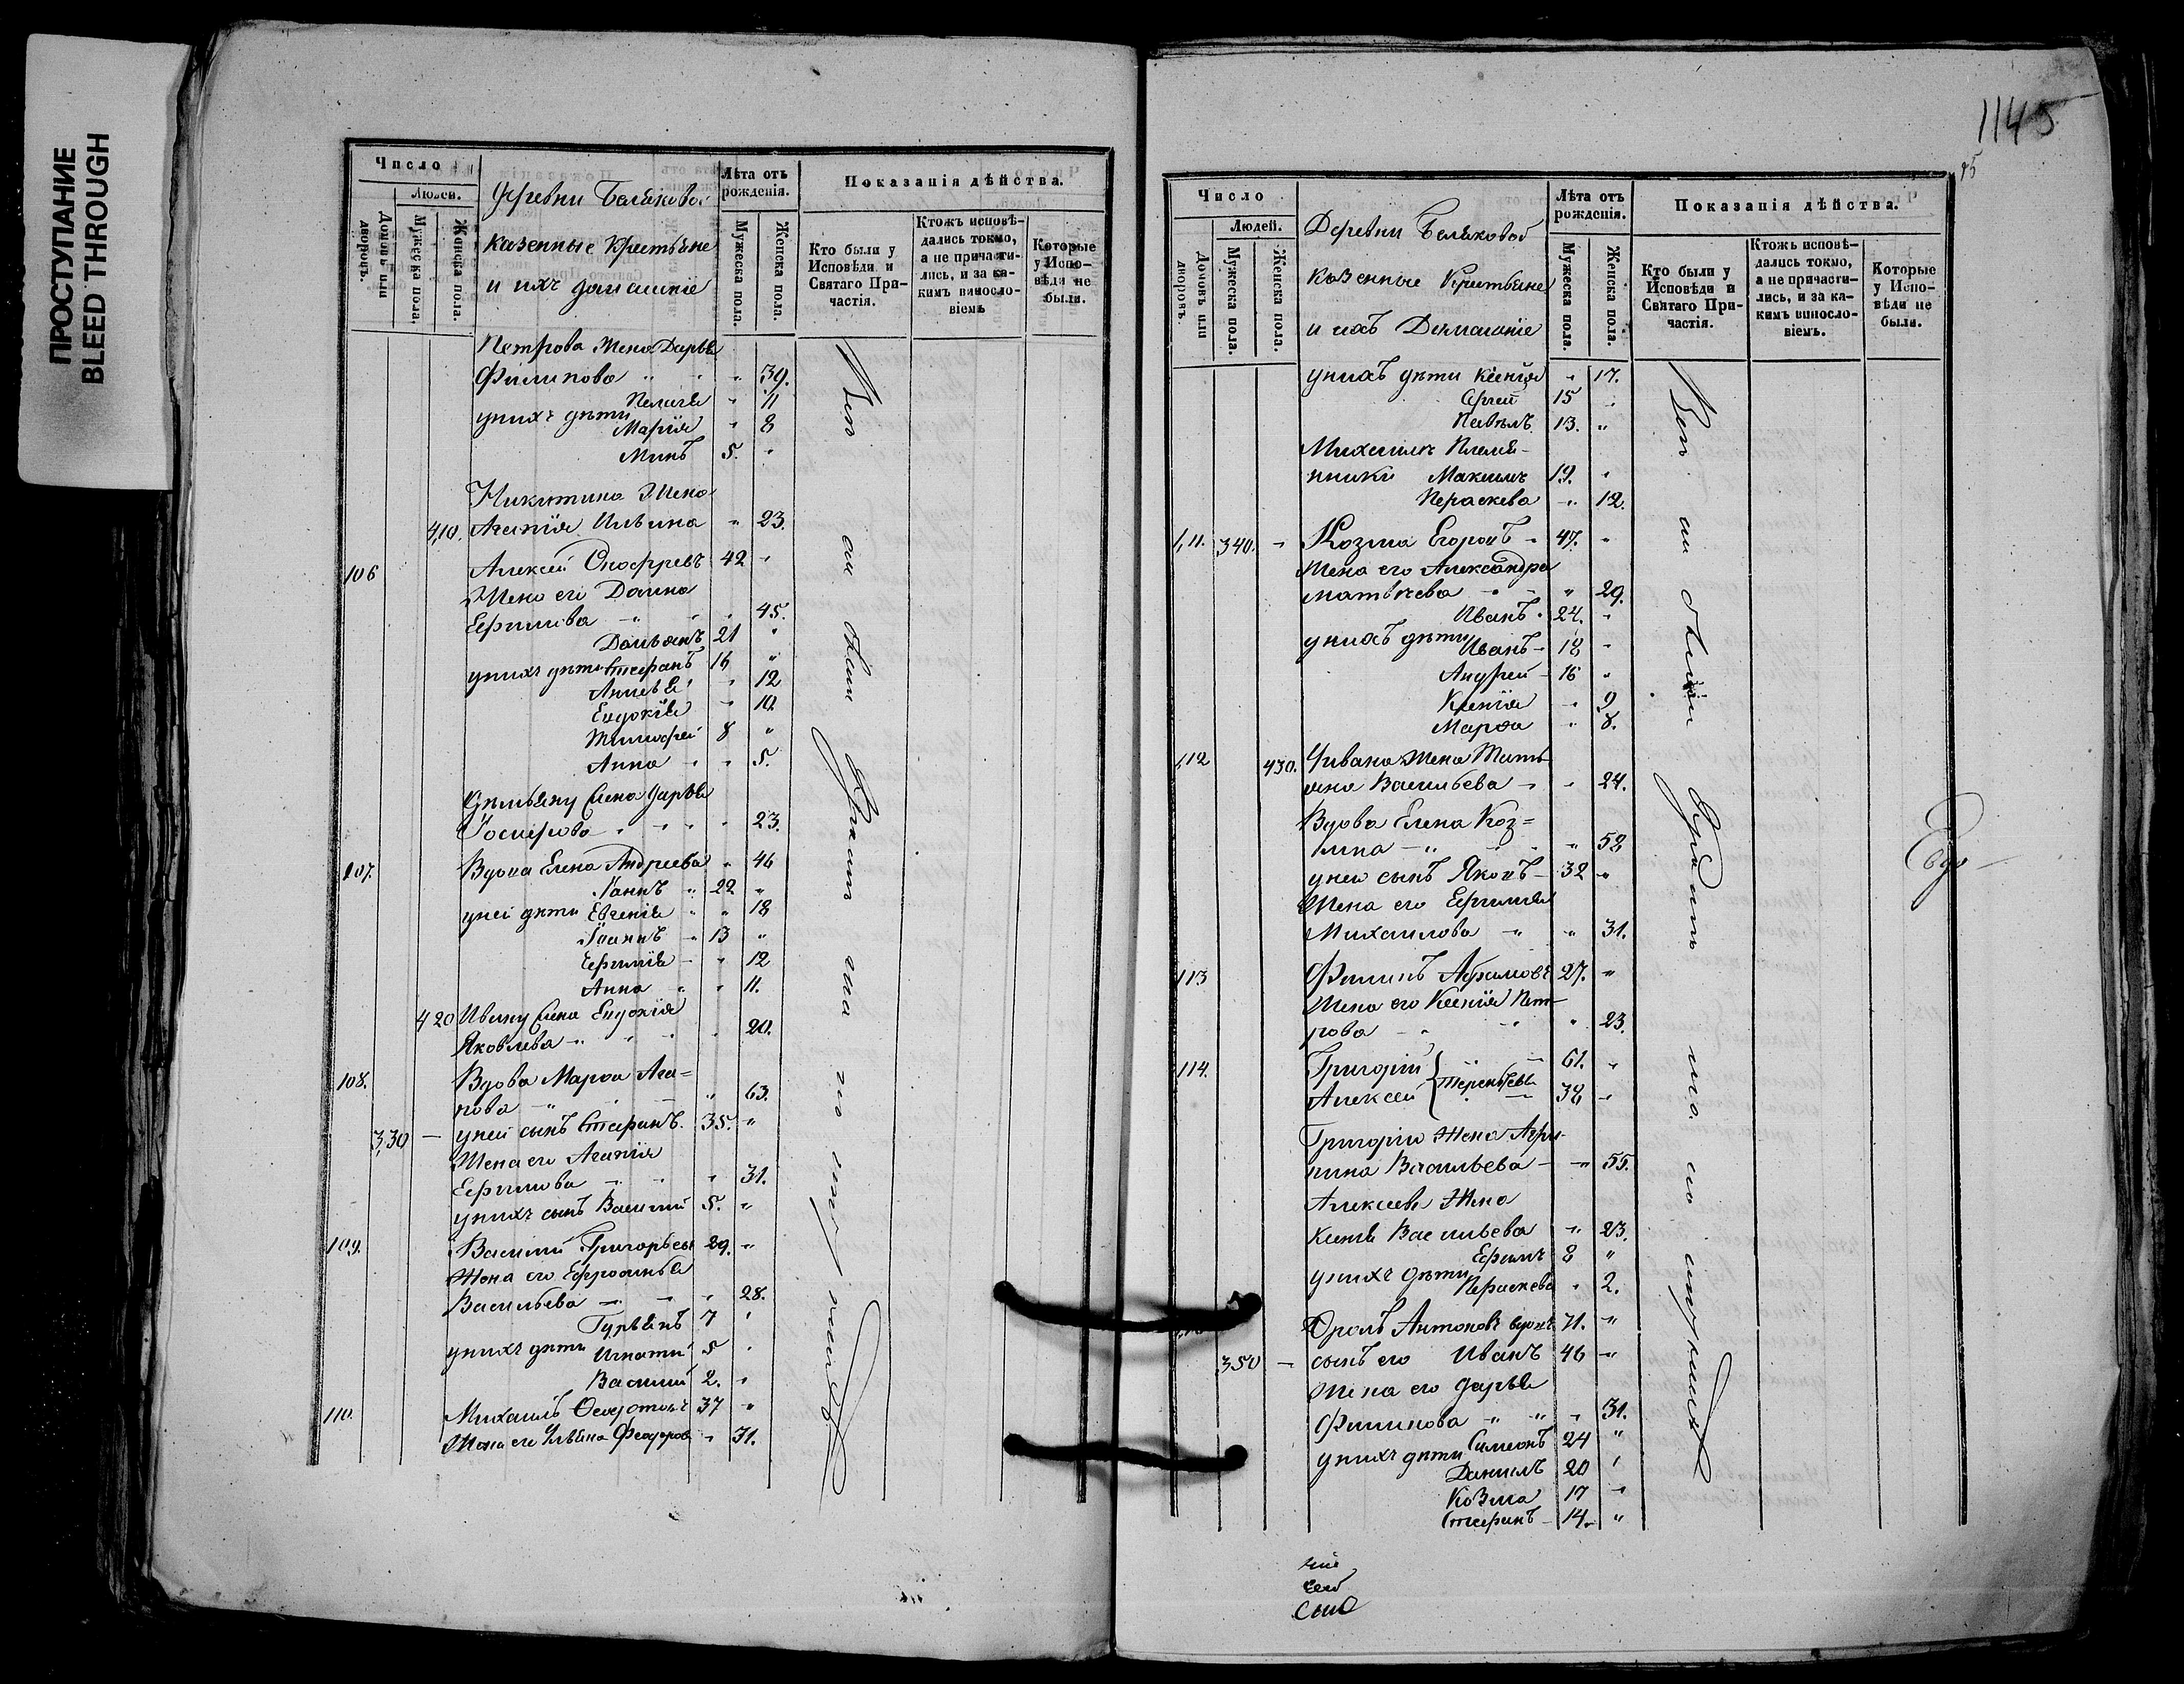 ПРОСТУПАНИЕ
BLEED THROUGH
Число
Людей.
Домовъ или дворовъ.
Мужеска пола.
Женска пола.
Деревни Беляковой
казенные Крестьяне
и ихъ домашние
Лѣта отъ рожденія.
Мужеска пола.
Женска пола.
Показанія дѣйства.
Кто были у Исповѣди и Святаго Причастія.
Ктожъ исповѣдались токмо, а не причастились, и за какимъ винословіемъ
Которые у Исповѣди не были.
Петрова Жена Дарья
Филипова " " " 39.
Пелагея " 11
у нихъ дети
Мария " 8
Минъ 5. "
Никитина Жена
410. Агапия Ильина " 23
106 Алексей Онофревъ 42 "
Жена его Домна
Ефимова " " 45.
Домьянъ 21 "
у нихъ дети Стефанъ 16 "
" 12
Евдокия " 10.
Тимофей 8 "
Анна " " 5.
Демьяну Жена Дарья
" " " 23.
107. Вдова Елена Андреева " 46
Ианнъ " 22 "
у ней дети Евгения " " 18
Ианнъ " 13 "
Ефимия " " 12
Анна " " 11.
420 Ивану Жена Евдокия
Яковлева " " " " 20.
108. Вдова Марфа Ага=
пова " " " " 63.
330 — у ней сынъ Стефанъ. 35. "
Жена его Агапия
Ефимова " " " 31.
у нихъ сынъ Василий 5. "
109. Василий Григорьевъ 29. "
Жена его Ефросинья
Васильева — — " 28.
Гурьянъ 7 "
у нихъ дети Игнатий 5 "
Василий 2. "
110. Михаилъ 37 "
Жена его Ульяна Феодорова " 31.
Вси они были
1145
95
Число
Людей.
Домовъ или дворовъ.
Мужеска пола.
Женска пола.
Деревни Беляковой
казенные Крестьяне
и ихъ Домашние
Лѣта отъ рожденія.
Мужеска пола.
Женска пола.
Показанія дѣйства.
Кто были у Исповѣди и Святаго Причастія.
Ктожъ исповѣдались токмо, а не причастились, и за какимъ винословіемъ.
Которые у Исповѣди не были.
у нихъ дети Ксения " 17.
Сергей 15 "
Павелъ 13. "
Михаилъ Племя-
нники Максимъ 19. "
Пераскева " 12.
111. 340. " Козма Егоровъ " 47. "
Жена его Александра
Матвеева " " " 29.
Иванъ " 24. "
у нихъ дети
Иванъ " 18 "
Андрей " 16 "
Ксения " 9
Марфа " 8.
112 430. Ивана Жена Тать
яна Васильева " " 24.
Вдова Елена Коз=
мина " " 52
у ней сынъ Яковъ — 32 "
Жена его Ефимия
Михаилова " " 31.
113 Филипъ Абрамовъ 27. "
Жена его Ксения Пет-
рова " " " 23.
114. Григорий 61. "
Терентьевы
Алексей 38 "
Григория Жена Агри-
пина Васильева — " 55.
Алексея Жена
Васильева " 23.
Ефимъ 8 "
у нихъ дети
Пераскева " 2.
Фролъ Антоновъ вдовъ 71. "
350 — сынъ его Иванъ 46 "
Жена его Дарья
Филипова " " " 31.
у нихъ дети Симеонъ 24 "
Данилъ 20 "
Козма 17 "
Стефанъ — 14. "
Вси они были